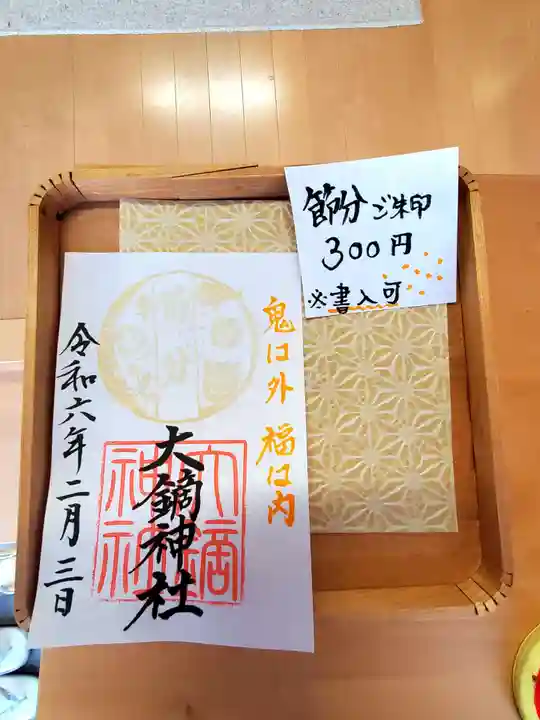 節分ご朱印
300円
※書入可
鬼は外 福は内
大鏑神社
令和六年二月三日